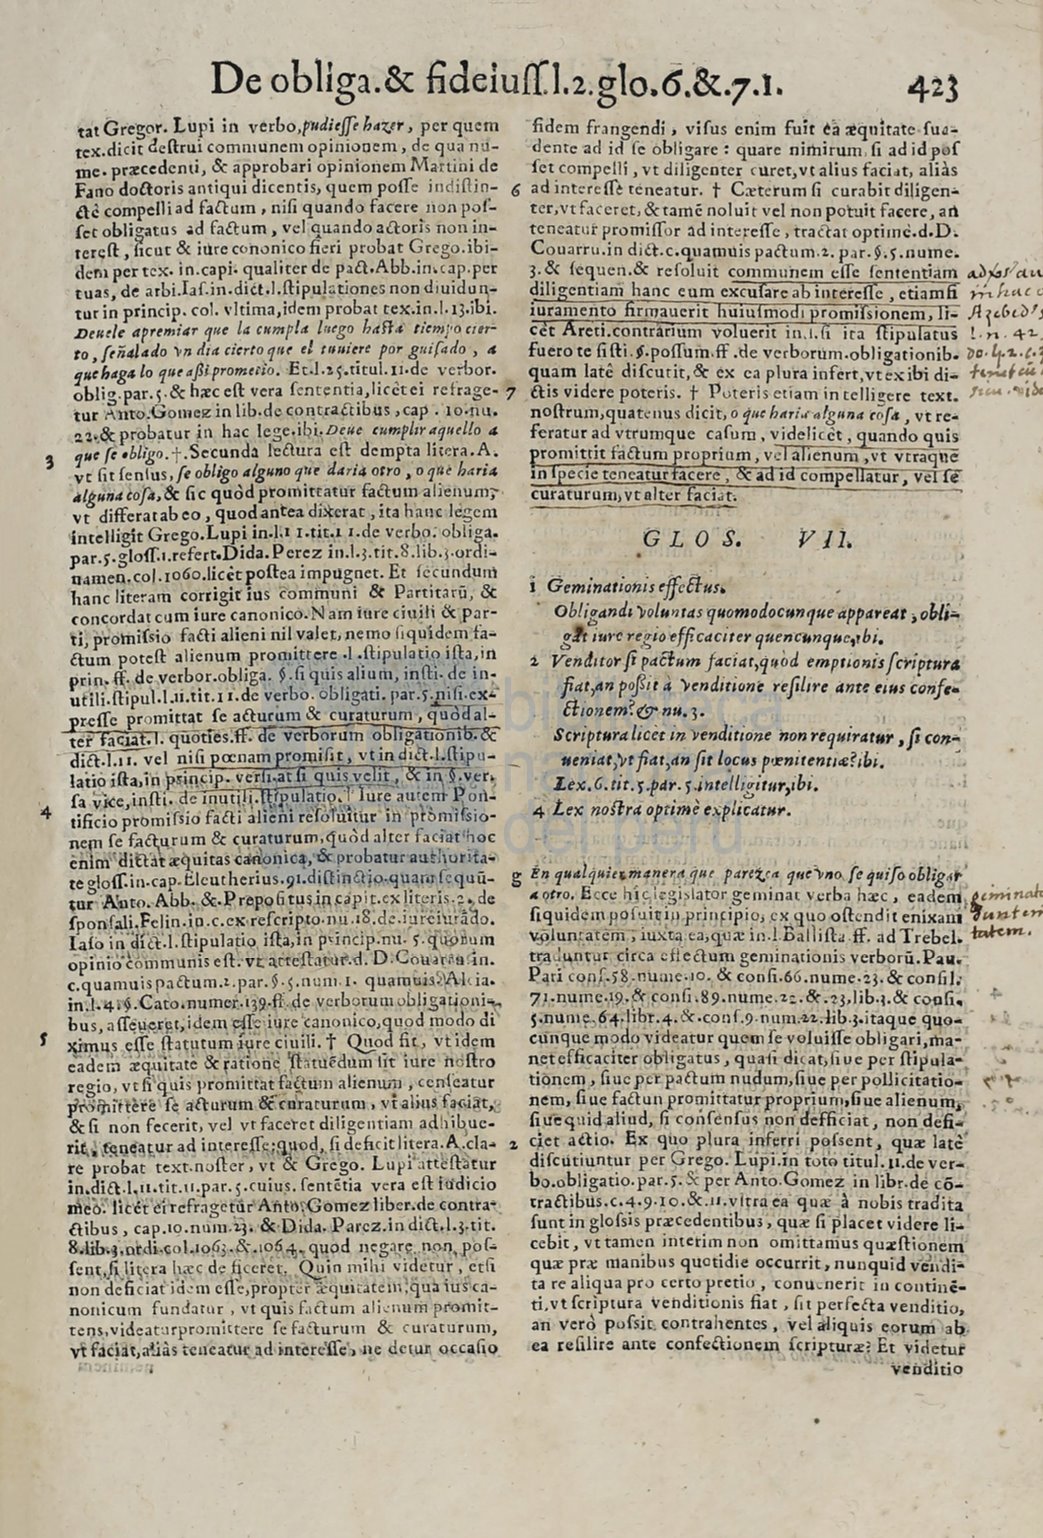 De obliga.& fideiuſſ.l.2.glo.6.&.7.1. 423
tat Gregor. Lupi in verbo, pudieſſe hazer, per quem
tex.dicit deſtrui communem opinionem, de qua nu-
me. præcedenti, & approbari opinionem Martini de
Fano doctoris antiqui dicentis, quem poſſe indiſtin-
ctè compelli ad factum, niſi quando facere non poſ-
ſet obligatus ad factum, vel quando actoris non in-
tereſt, ſicut & iure cononico fieri probat Grego.ibi-
dem per tex. in.capi. qualiter de pact.Abb.in.cap.per
tuas, de arbi.Iaſ.in.dict.l.ſtipulationes non diuidun-
tur in princip. col. vltima,idem probat tex.in.l.13.ibi.
Deuele apremiar que la cumpla luego haſta tiempo cier-
to, ſeñalado vn dia cierto que el tuuiere por guiſado, a
que haga lo que aßi prometio. Et.l.25.titul.11.de verbor.
oblig.par.5.& hæc eſt vera ſententia,licèt ei refrage-
tur Anto.Gomez in lib.de contractibus, cap. 10.nu.
22.& probatur in hac lege.ibi.Deue cumplir aquello a
3 que ſe obligo.†.Secunda lectura eſt dempta litera.A.
vt ſit ſenſus, ſe obligo alguno que daria otro, o que haria
alguna coſa,& ſic quòd promittatur factum alienum,
vt differat ab eo, quod antea dixerat, ita hanc legem
intelligit Grego.Lupi in.l.11.tit.11.de verbo. obliga.
par.5.gloſſ.1.refert.Dida.Perez in.l.3.tit.8.lib.3.ordi-
namen.col.1060.licèt poſtea impugnet. Et ſecundum
hanc literam corrigit ius communi & Partitarũ, &
concordat cum iure canonico.Nam iure ciuili & par-
ti, promiſsio facti alieni nil valet, nemo ſiquidem fa-
ctum poteſt alienum promittere.l.ſtipulatio iſta,in
prin. ff. de verbor.obliga. §.ſi quis alium, inſti. de in-
utili.ſtipul.l.11.tit.11.de verbo. obligati. par.5.niſi.ex-
preſſe promittat ſe acturum & curaturum, quòd al-
ter faciat.l. quoties.ff. de verborum obligationib.&
dict.l.11. vel niſi pœnam promiſit, vt in dict.l.ſtipu-
latio iſta,in princip. verſi.at ſi quis velit, & in §.ver-
ſa vice,inſti. de inutili.ſtipulatio.† Iure autem Pon-
4 tificio promiſsio facti alieni reſoluitur in promiſsio-
nem ſe facturum & curaturum,quòd alter faciat hoc
enim dictat æquitas canonica, & probatur authorita-
te gloſſ.in.cap.Eleutherius.91.diſtinctio.quam ſequũ-
tur Anto. Abb. & Prepoſitus in capit.ex literis.2.de
ſponſali.Felin.in.c.ex reſcripto.nu.18.de.iureiurãdo.
Iaſo in dict.l.ſtipulatio iſta,in princip.nu. 5.quorum
opinio communis eſt. vt atteſtatur.d. D.Couarru in.
c.quamuis pactum.2.par.§.5.num.1. quamuis Alcia.
in.l.4.§.Cato.numer.139.ff. de verborum obligationi-
bus, aſſeueret,idem eſſe iure canonico,quod modo di
5 ximus eſſe ſtatutum iure ciuili.† Quod ſit, vt idem
eadem æquitate & ratione ſtatuẽdum ſit iure noſtro
regio, vt ſi quis promittat factum alienum, cenſeatur
promittere ſe acturum & curaturum, vt alius faciat,
& ſi non fecerit, vel vt faceret diligentiam adhibue-
rit, teneatur ad intereſſe:quod, ſi deficit litera.A.cla-
re probat text.noſter, vt & Grego. Lupi atteſtatur
in.dict.l.11.tit.11.par.5.cuius. ſentẽtia vera eſt iudicio
meo. licèt ei refragetur Anto:Gomez liber.de contra-
ctibus, cap.10.num.23. & Dida. Parez.in dict.l.3.tit.
8.lib.3.ordi.col.1063.&.1064. quod negare non poſ-
ſent,ſi litera hæc deficeret. Quin mihi videtur, etſi
non deficiat idem eſſe,propter æquitatem,qua ius ca-
nonicum fundatur, vt quis factum alienum promit-
tens,videatur promittere ſe facturum & curaturum,
vt faciat,aliàs teneatur ad intereſſe, ne detur occaſio
fidem frangendi, viſus enim fuit ea æquitate ſua-
dente ad id ſe obligare: quare nimirum ſi ad id poſ
ſet compelli, vt diligenter curet,vt alius faciat, aliàs
6 ad intereſſe teneatur. † Cæterum ſi curabit diligen-
ter,vt faceret,& tamẽ noluit vel non potuit facere, an
teneatur promiſſor ad intereſſe, tractat optimè.d.D.
Couarru.in dict.c.quamuis pactum.2. par.§.5.nume.
3.& ſequen.& reſoluit communem eſſe ſententiam
diligentiam hanc eum excuſare ab intereſſe, etiam ſi
iuramento firmauerit huiuſmodi promiſsionem, li-
cèt Areti.contrarium voluerit in.l.ſi ita ſtipulatus
fuero te ſiſti.§.poſſum.ff.de verborum.obligationib.
quam latè diſcutit,& ex ea plura infert,vt ex ibi di-
7 ctis videre poteris. † Poteris etiam intelligere text.
noſtrum,quatenus dicit, o que haria alguna coſa, vt re-
feratur ad vtrumque caſum, videlicèt, quando quis
promittit factum proprium, vel alienum,vt vtraque
in ſpecie teneatur facere, & ad id compellatur, vel ſe
curaturum,vt alter faciat.
GLOS. VII.
1 Geminationis effectus.
Obligandi voluntas quomodocunque appareat, obli-
gat iure regio efficaciter quencunque,ibi.
2 Venditor ſi pactum faciat,quòd emptionis ſcriptura
fiat,an poßit à venditione reſilire ante eius confe-
ctionem?& nu.3.
Scriptura licèt in venditione non requiratur, ſi con-
ueniat,vt fiat,an ſit locus pœnitentiæ?ibi.
Lex.6.tit.5.par.5.intelligitur,ibi.
4 Lex noſtra optimè explicatur.
g En qualquier manera que parezca que vno ſe quiſo obligar
a otro. Ecce hic legislator geminat verba hæc, eadem
ſiquidem poſuit in principio, ex quo oſtendit enixam
voluntatem, iuxta ea,quæ in.l.Balliſta.ff. ad Trebel.
traduntur circa effectum geminationis verborũ.Pau.
Pari conſ.58.nume.10. & conſi.66.nume.23.& conſil.
71.nume.19.& conſi.89.nume.22.&.23.lib.3.& conſi.
5.nume.64.libr.4.&.conſ.9.num.22.lib.3.itaque quo-
cunque modo videatur quem ſe voluiſſe obligari,ma-
net efficaciter obligatus, quaſi dicat,ſiue per ſtipula-
tionem, ſiue per pactum nudum,ſiue per pollicitatio-
nem, ſiue factun promittatur proprium,ſiue alienum,
ſiue quid aliud, ſi conſenſus non defficiat, non defi-
2 ciet actio. Ex quo plura inferri poſsent, quæ latè
diſcutiuntur per Grego. Lupi.in toto titul.11.de ver-
bo.obligatio.par.5.& per Anto.Gomez in libr.de cõ-
tractibus.c.4.9.10.&.11.vltra ea quæ à nobis tradita
ſunt in gloſsis præcedentibus, quæ ſi placet videre li-
cebit, vt tamen interim non omittamus quæſtionem
quæ præ manibus quotidie occurrit, nunquid vendi-
ta re aliqua pro certo pretio, conuenerit in continẽ-
ti,vt ſcriptura venditionis fiat, ſit perfecta venditio,
an verò poſsit contrahentes, vel aliquis eorum ab
ea reſilire ante confectionem ſcripturæ? Et videtur
venditio